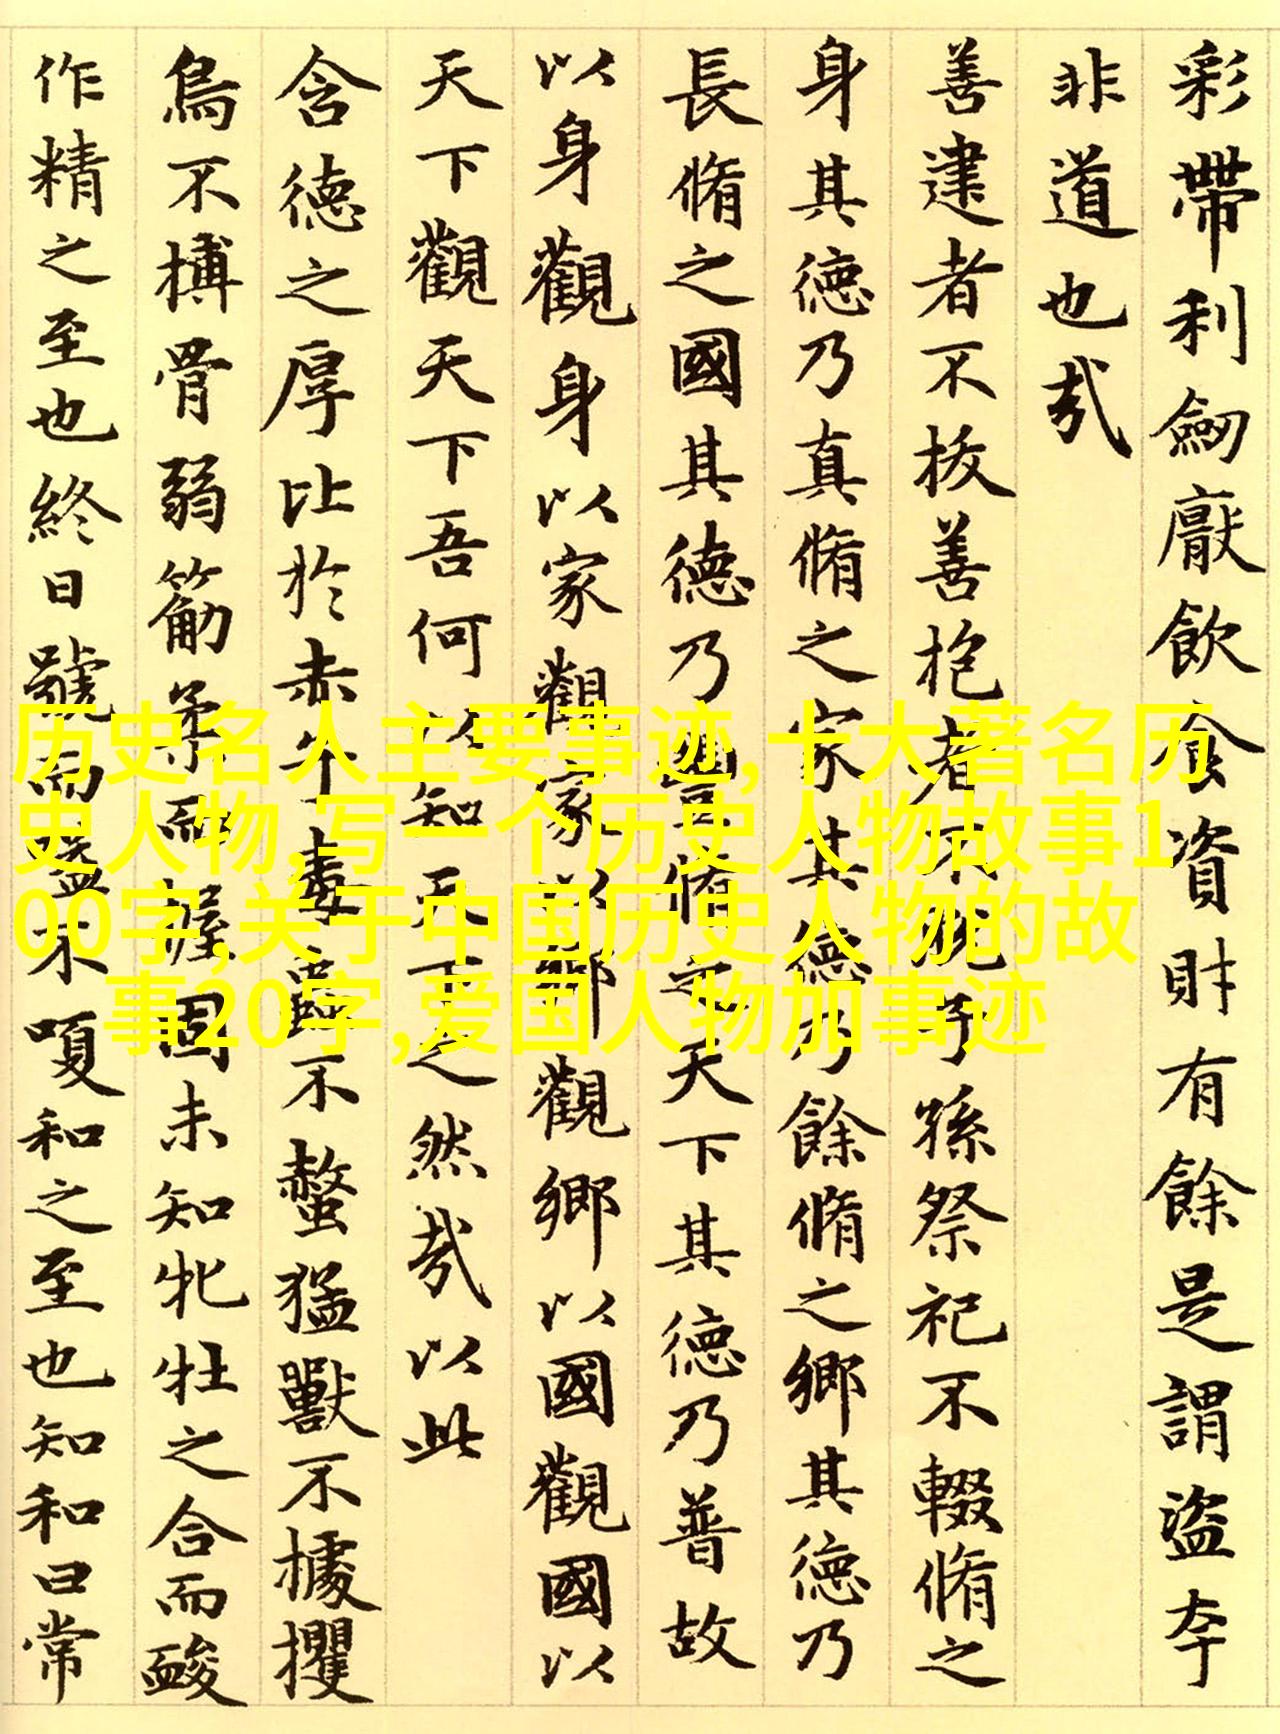 彩帶利劒厭飲食資財有餘是謂盜夸
非道也哉
善建者不拔善抱者不脫子孫祭祀不輟脩之
身其德乃真脩之家其德乃餘脩之鄉其德乃
長脩之國其德乃豐脩之天下其德乃普故
以身觀身以家觀家以鄉觀鄉以國觀國以
天下觀天下吾何以知天下之然哉以此
含德之厚比於赤子毒蟲不螫猛獸不據攫
鳥不搏骨弱筋柔而握固未知牝牡之合而酸
作精之至也終日號而嗌不嗄和之至也知和曰常
历史名人主要事迹,十大著名历
史人物,写一个历史人物故事1
00字,关于中国历史人物的故
事20字,爱国人物加事迹